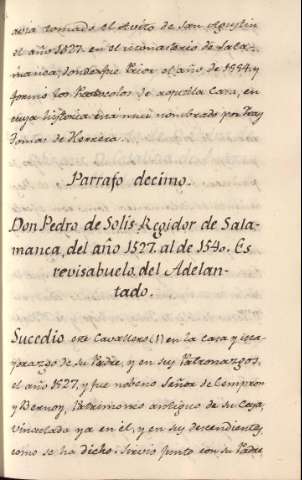 avia tomado el Avito de San Agustin
el año 1527. en el monasterio de Sala-
manca, donde fue Prior el año, de 1554. y
formó los Protocolos de aquella Casa, en
cuya historia está mui nombrado por Fray
Tomas de Herrera.
Parrafo decimo.
Don Pedro de Solis Regidor de Sala-
manca, del año 1527. al de 1540. Es
revisabuelo, del Adelan-
tado.
Sucedio este Cavallero (1) en la casa y ma-
yorazgo de su Padre, y en sus Patronazgos,
el año 1527, y fue noveno Señor de Cempron
y Bernoy, Patrimonio antiguo de su Casa,
vinculada ya en él, y en sus descendientes,
como se ha dicho. Sirvio junto con su Padre,